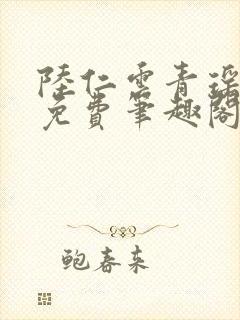 陸仁雲青瑶
免費筆趣閣
鲍春来